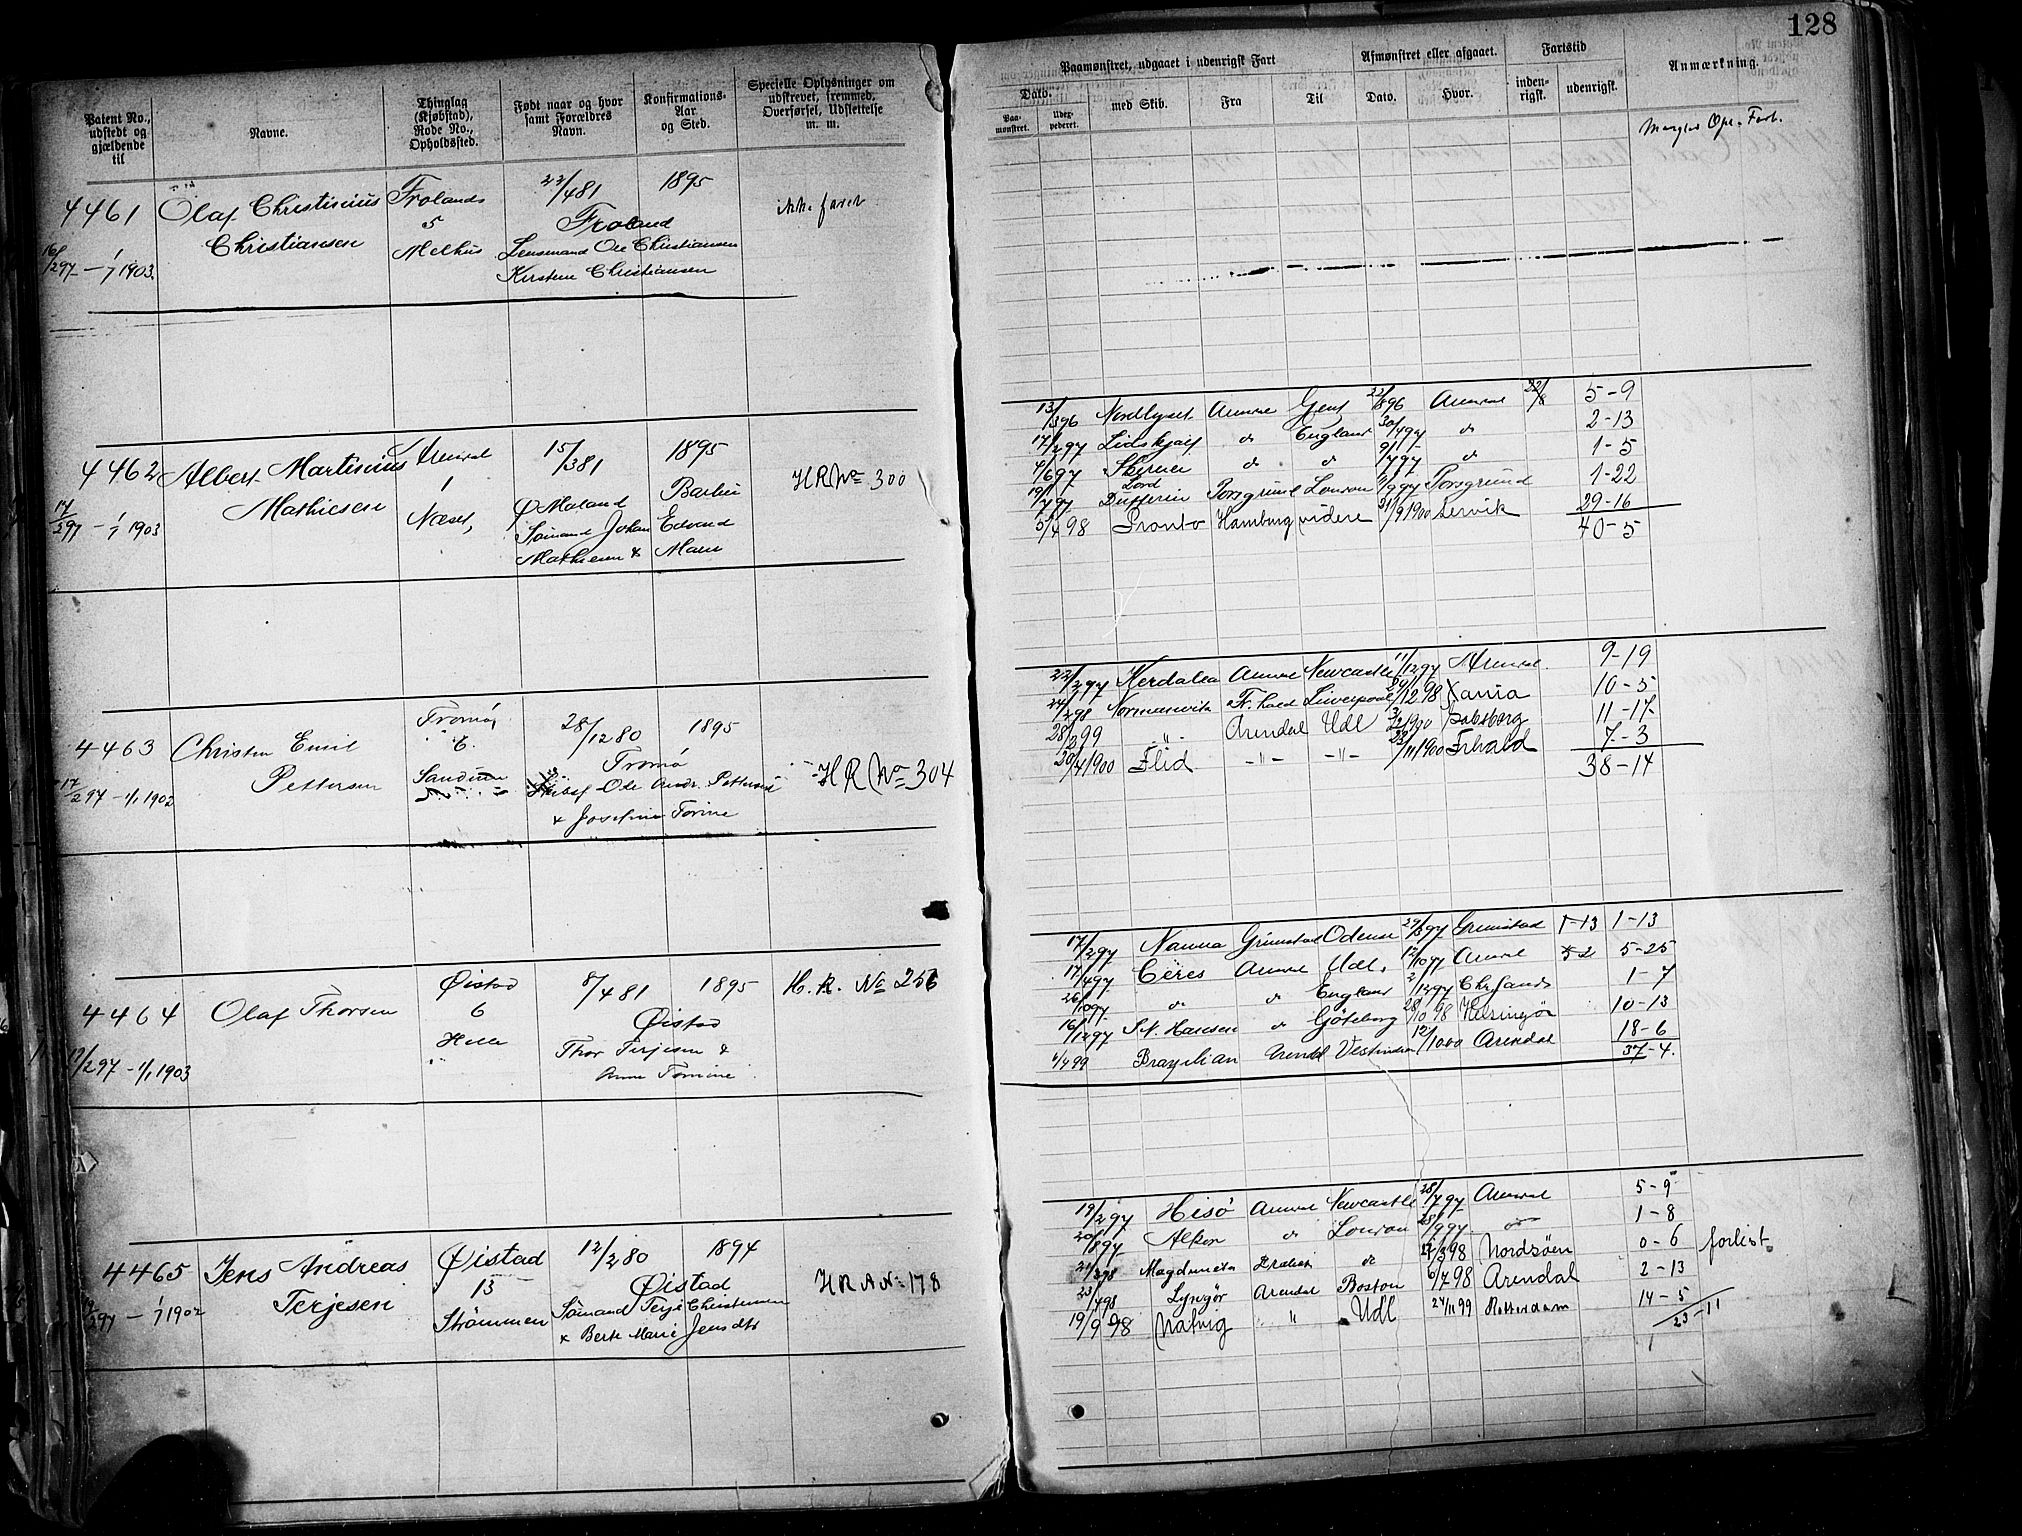 128
Patent No., udstedt og gjældende til
Navne.
Thinglag (Kjøbstad), Rode No., Opholdssted.
Født naar og hvor samt Forældres Navn.
Konfirmations-Aar og Sted.
Specielle Oplysninger om udskrevet, fremmed, Overførsel, Udslettelse m. m.
Paamønstret, udgaaet i udenrigsk Fart
Dato.
Paamønstret.
Udexpederet.
med Skib.
Fra
Til
Afmønstret eller afgaaet.
Dato.
Hvor.
Fartstid
indenrigsk.
udenrigsk.
Anmærkning.
4461 Olaf Christinius Frolands 22/4 81 1895 ikke faret
Christiansen 5 Froland
16/2 97 – 1/1 1903. Melhus Lensmand Ole Christiansen
Kirsten Christiansen
4462 Albert Martinius Arendal 15/3 81 1895 HR No 300
Mathiesen 1 Ø Moland Barbu
17/2 97 – 1/1 1903 Næset, Sømand Johan Edvard
Mathiesen & Maren
13/3 96 Nordlyset Arendal Gent 22/8 96 Arendal 22/8 5-9
17/2 97 Lidskjalf do England 30/4 97 do 2-13
4/6 97 Skirner do do 9/7 97 do 1-5
19/7 97 Lord Dufferin Porsgrund London 11/9 97 Porsgrund 1-22
5/4 98 Pronto Hamburg videre 21/9 1900 Lervik 29-16
40-5
4463 Christen Emil Tromø, 28/12 80 1895 HR No 304
Pettersen 6. Tromø
17/2 97 – 1/1 1902 Sandum Ole Andr. Pettersen
& Josefine Torine
22/2 97 Arendal Newcastle 11/12 97 Arendal 9-19
24/2 98 Normanvik Fr.hald Liverpool 24/12 98 Xania 10-5
28/2 99 -„- Arendal Udl 3/2 1900 11-17
20/4 1900 Elid -„- -„- 23/11 1900 Frhald 7-3
38-14
4464 Olaf Thorsen Øistad 8/4 81 1895 H.R. No 256
6 Øistad
17/2 97 – 1/1 1903 Helle Thor Terjesen &
Anne Tomine
17/2 97 Nanna Grimstad Odense 29/3 97 Grimstad 1-13 1-13
17/4 97 Ceres Arendal Udl. 12/10 97 Arendal 5-25
26/10 97 do do England 2/12 97 Chr.sand 1-7
16/12 97 S.N. Hansen do Göteborg 28/10 98 Helsingør 10-13
1/4 99 Brazilian Arendal Vestindien 12/10 00 Arendal 18-6
37-4.
4465 Jens Andreas Øistad 12/2 80 1894 HRA No 178
Terjesen 13 Øistad
19/2 97 – 1/1 1902 Strømmen Sømand Terje Christensen
& Berte Marie Jensdtr
19/2 97 Hisø Arendal Newcastle 28/7 97 Arendal 5-9
20/8 97 Alkor do London 28/9 97 do 1-8
21/2 98 Magdonela do 12/3 98 Nordsöen 0-6 forlist.
23/4 98 Lyngør Arendal Boston 6/7 98 Arendal 2-13
19/9 98 Natvig „ Udl 24/11 99 Rotterdam 14-5
23-11